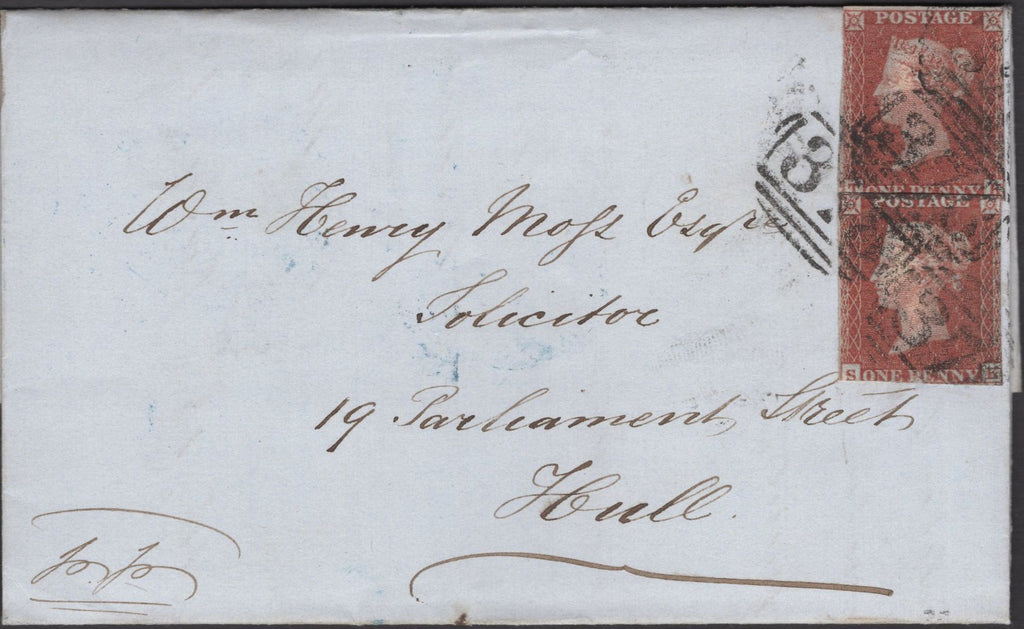 POSTAGE
ONE PENNY
POSTAGE
S ONE PENNY K
8
Wm Henry Moss Esqre
Solicitor
19 Parliament Street
Hull.
p.p.